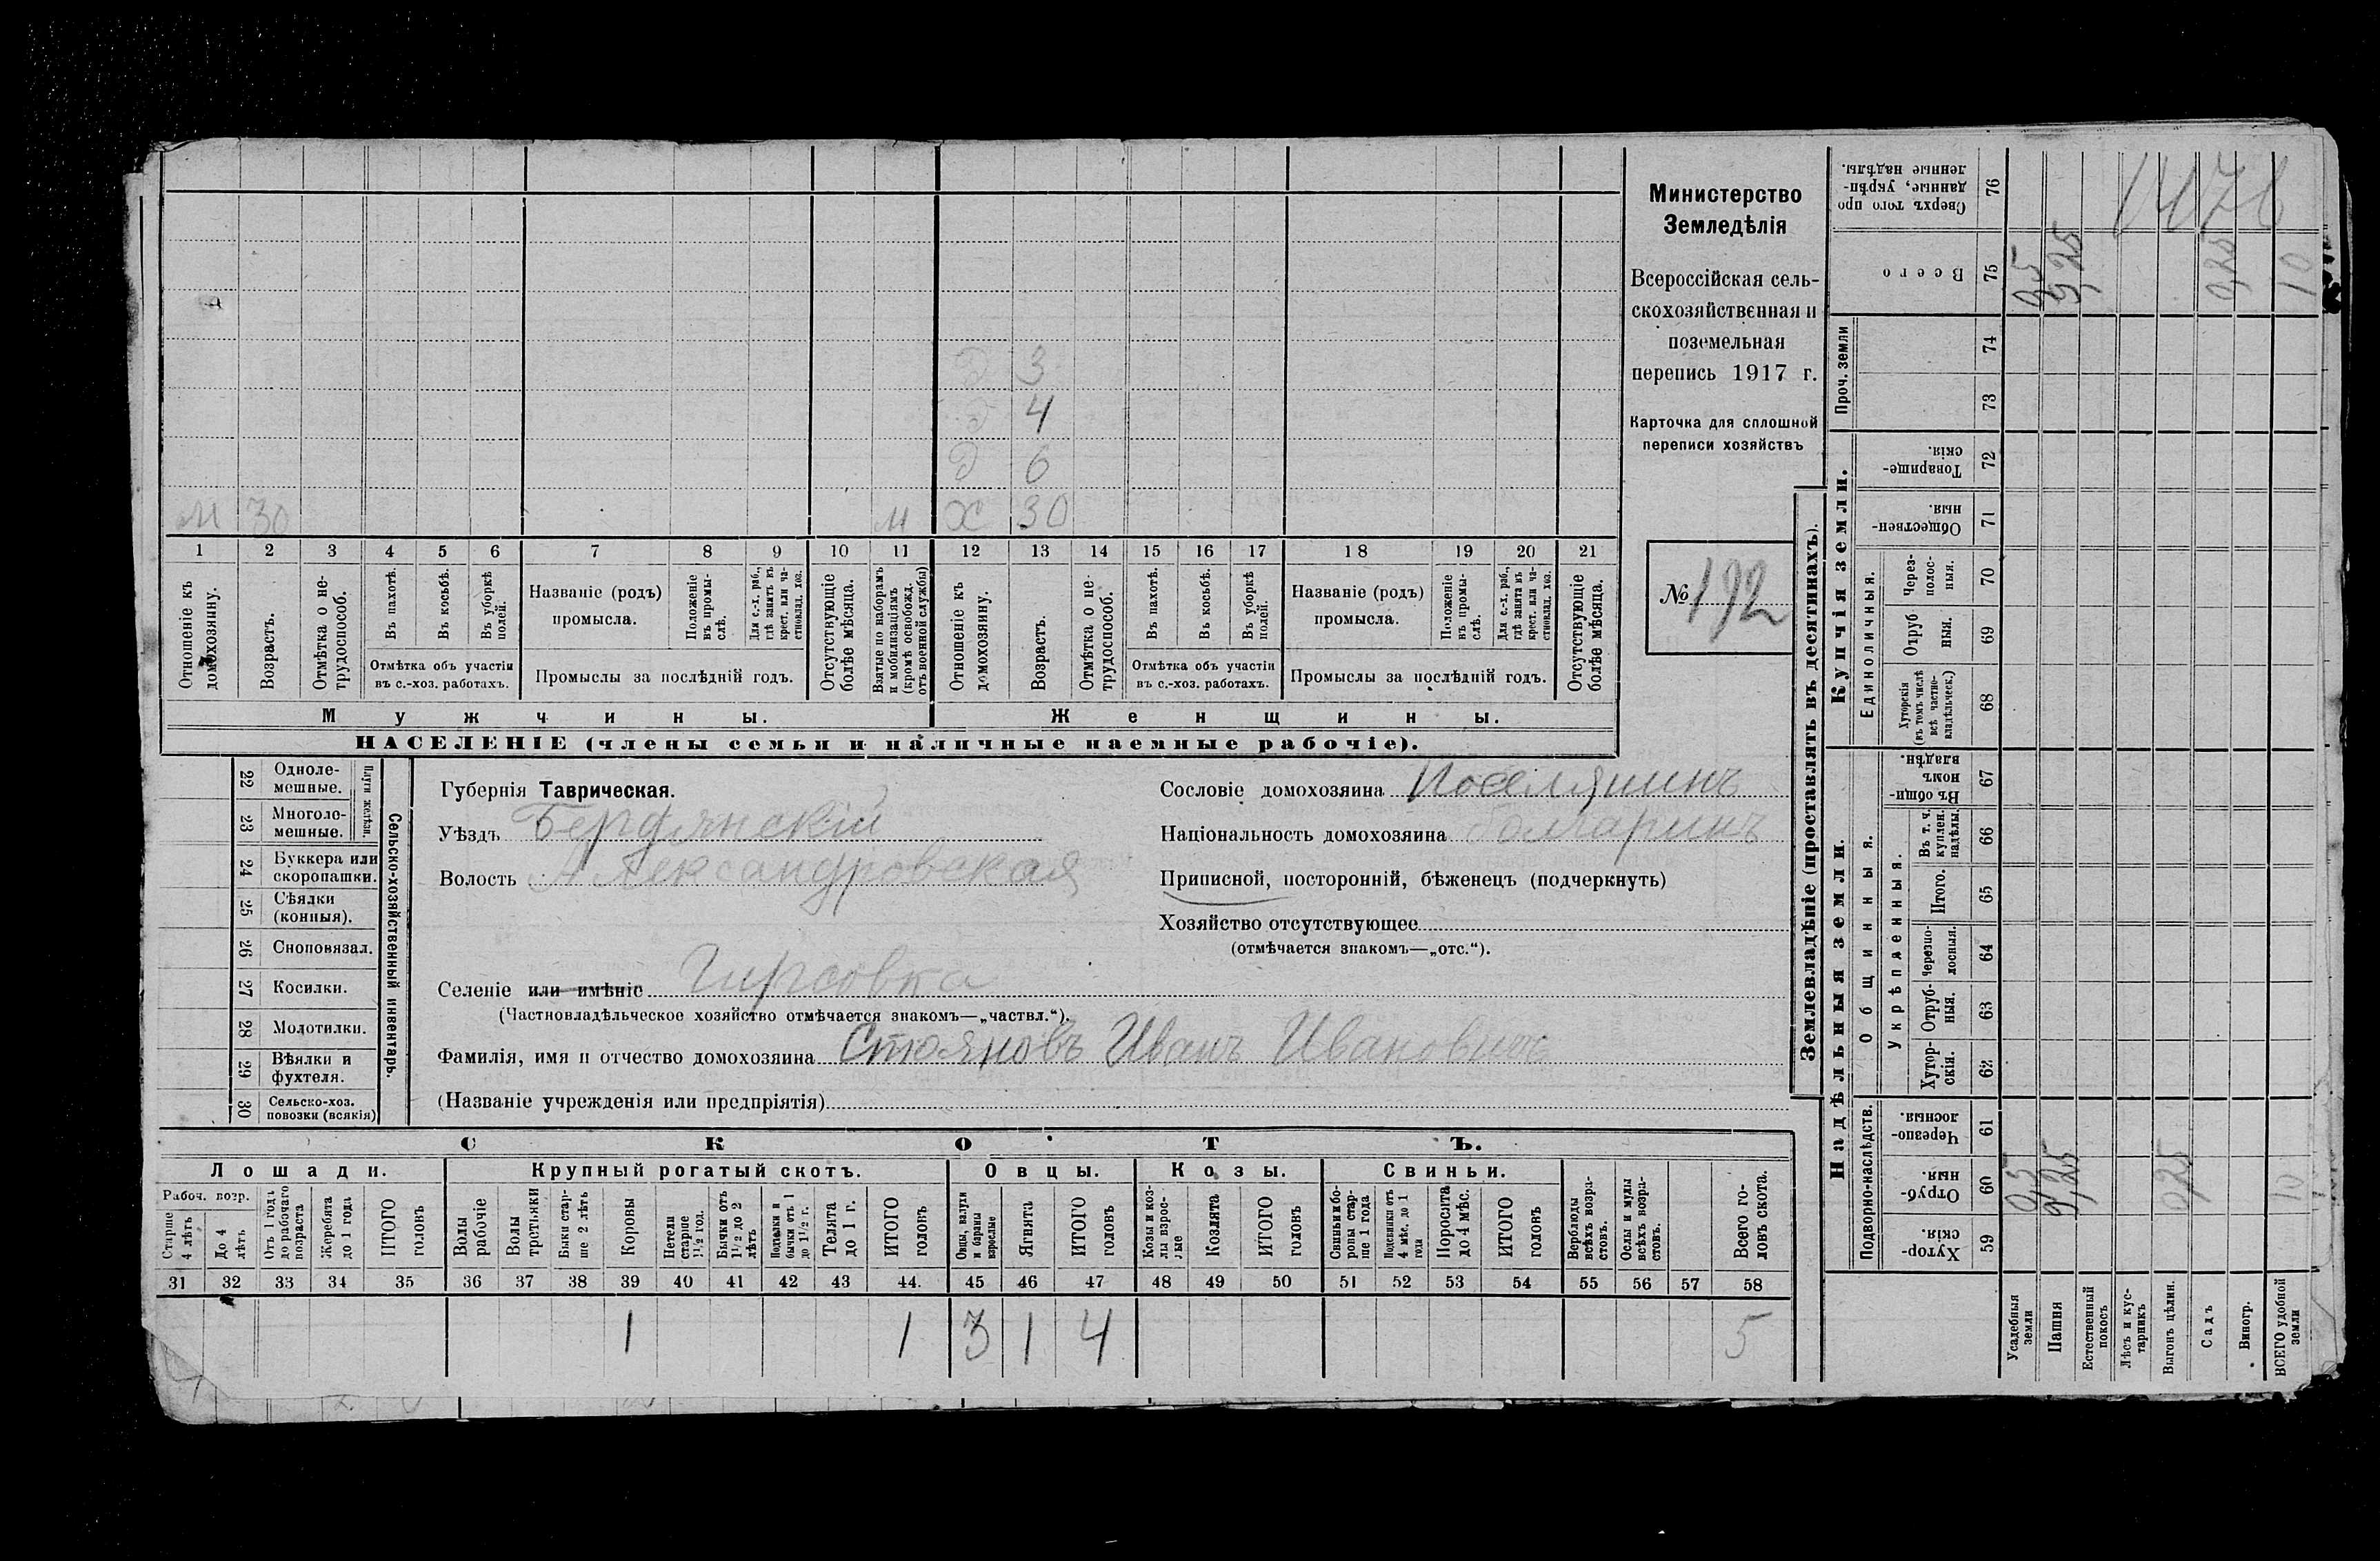 Министерство
Земледѣлія
Всероссійская сель-
скохозяйственная и
поземельная
перепись 1917 г.
Карточка для сплошной
переписи хозяйствъ
№ 192
Д 3
Д 4
Д 6
М 30 М Х 30
1 2 3 4 5 6 7 8 9 10 11 12 13 14 15 16 17 18 19 20 21
Отношеніе къ домохозяину.
Возрастъ.
Отмѣтка о не-трудоспособ.
Въ пахотѣ.
Въ косьбѣ.
Въ уборкѣ полей.
Отмѣтка объ участіи
въ с.-хоз. работахъ.
Названіе (родъ)
промысла.
Положеніе въ промы-слѣ.
Для с.-х. раб., гдѣ занятъ въ крест. или ча-стновлад. хоз.
Промыслы за послѣдній годъ.
Отсутствующіе болѣе мѣсяца.
Взятые по наборамъ и мобилизаціямъ (кромѣ освобожд. отъ военной службы)
Отношеніе къ домохозяину.
Возрастъ.
Отмѣтка о не-трудоспособ.
Въ пахотѣ.
Въ косьбѣ.
Въ уборкѣ полей.
Отмѣтка объ участіи
въ с.-хоз. работахъ.
Названіе (родъ)
промысла.
Положеніе въ промы-слѣ.
Для с.-х. раб., гдѣ занята въ крест. или ча-стновлад. хоз.
Промыслы за послѣдній годъ.
Отсутствующіе болѣе мѣсяца.
Мужчины. Женщины.
НАСЕЛЕНІЕ (члены семьи и наличные наемные рабочіе).
Сельско-хозяйственный инвентарь.
Плуги желѣзн.
22 Одноле-мешные.
23 Многоле-мешные.
24 Буккера или скоропашки.
25 Сѣялки (конныя).
26 Сноповязал.
27 Косилки.
28 Молотилки.
29 Вѣялки и фухтеля.
30 Сельско-хоз. повозки (всякія)
Губернія Таврическая.
Уѣздъ Бердянскій
Волость Александровская
Селеніе или имѣніе Гирсовка
(Частновладѣльческое хозяйство отмѣчается знакомъ—„частвл.“).
Фамилія, имя и отчество домохозяина Стояновъ Иванъ Ивановичъ
(Названіе учрежденія или предпріятія)
Сословіе домохозяина Поселянинъ
Національность домохозяина болгаринъ
Приписной, посторонній, бѣженецъ (подчеркнуть)
Хозяйство отсутствующее
(отмѣчается знакомъ—„отс.“).
СКОТЪ.
Лошади. Крупный рогатый скотъ. Овцы. Козы. Свиньи.
Рабоч. возр.
Старше 4 лѣтъ
До 4 лѣтъ
Отъ 1 года до рабочаго возраста
Жеребята до 1 года
ИТОГО головъ
Волы рабочіе
Волы третьяки
Быки стар-ше 2 лѣтъ
Коровы
Нетели старше 1½ год.
Бычки отъ 1½ до 2 лѣтъ
Подтелки и бычки отъ 1 до 1½ г.
Телята до 1 г.
ИТОГО головъ
Овцы, валухи и бараны взрослые
Ягнята
ИТОГО головъ
Козы и коз-лы взрос-лые
Козлята
ИТОГО головъ
Свиньи и бо-ровы стар-ше 1 года
Подсвинки отъ 4 мѣс. до 1 года
Поросята до 4 мѣс.
ИТОГО головъ
Верблюды всѣхъ возра-стовъ.
Ослы и мулы всѣхъ возра-стовъ.
Всего го-ловъ скота.
31 32 33 34 35 36 37 38 39 40 41 42 43 44. 45 46 47 48 49 50 51 52 53 54 55 56 57 58
1 1 3 1 4 5
Землевладѣніе (проставлять въ десятинахъ).
Надѣльныя земли. Купчія земли. Проч. земли
Подворно-наслѣдств. Общинныя. Единоличныя.
Укрѣпленныя.
Хутор-скія. 59
Отруб-ныя. 60
Черезпо-лосныя. 61
Хутор-скія. 62
Отруб-ныя. 63
Черезпо-лосныя. 64
Итого. 65
Въ т. ч. куплен. надѣлы. 66
Въ общи-номъ владѣн. 67
Хуторскія (въ томъ числѣ всѣ частно-владѣльческ.) 68
Отруб ныя. 69
Через-полос-ныя. 70
Обществен-ныя. 71
Товарище-скія. 72
73
74
Всего 75
Сверхъ того про данные, укрѣп-ленные надѣлы. 76
Усадебныя земли 0,5 0,5
Пашня 9,25 9,25
Естественный покосъ
Лѣсъ и кус-тарникъ
Выгонъ цѣлин. 0,25
Садъ 0,25
Виногр.
ВСЕГО удобной земли 10 10